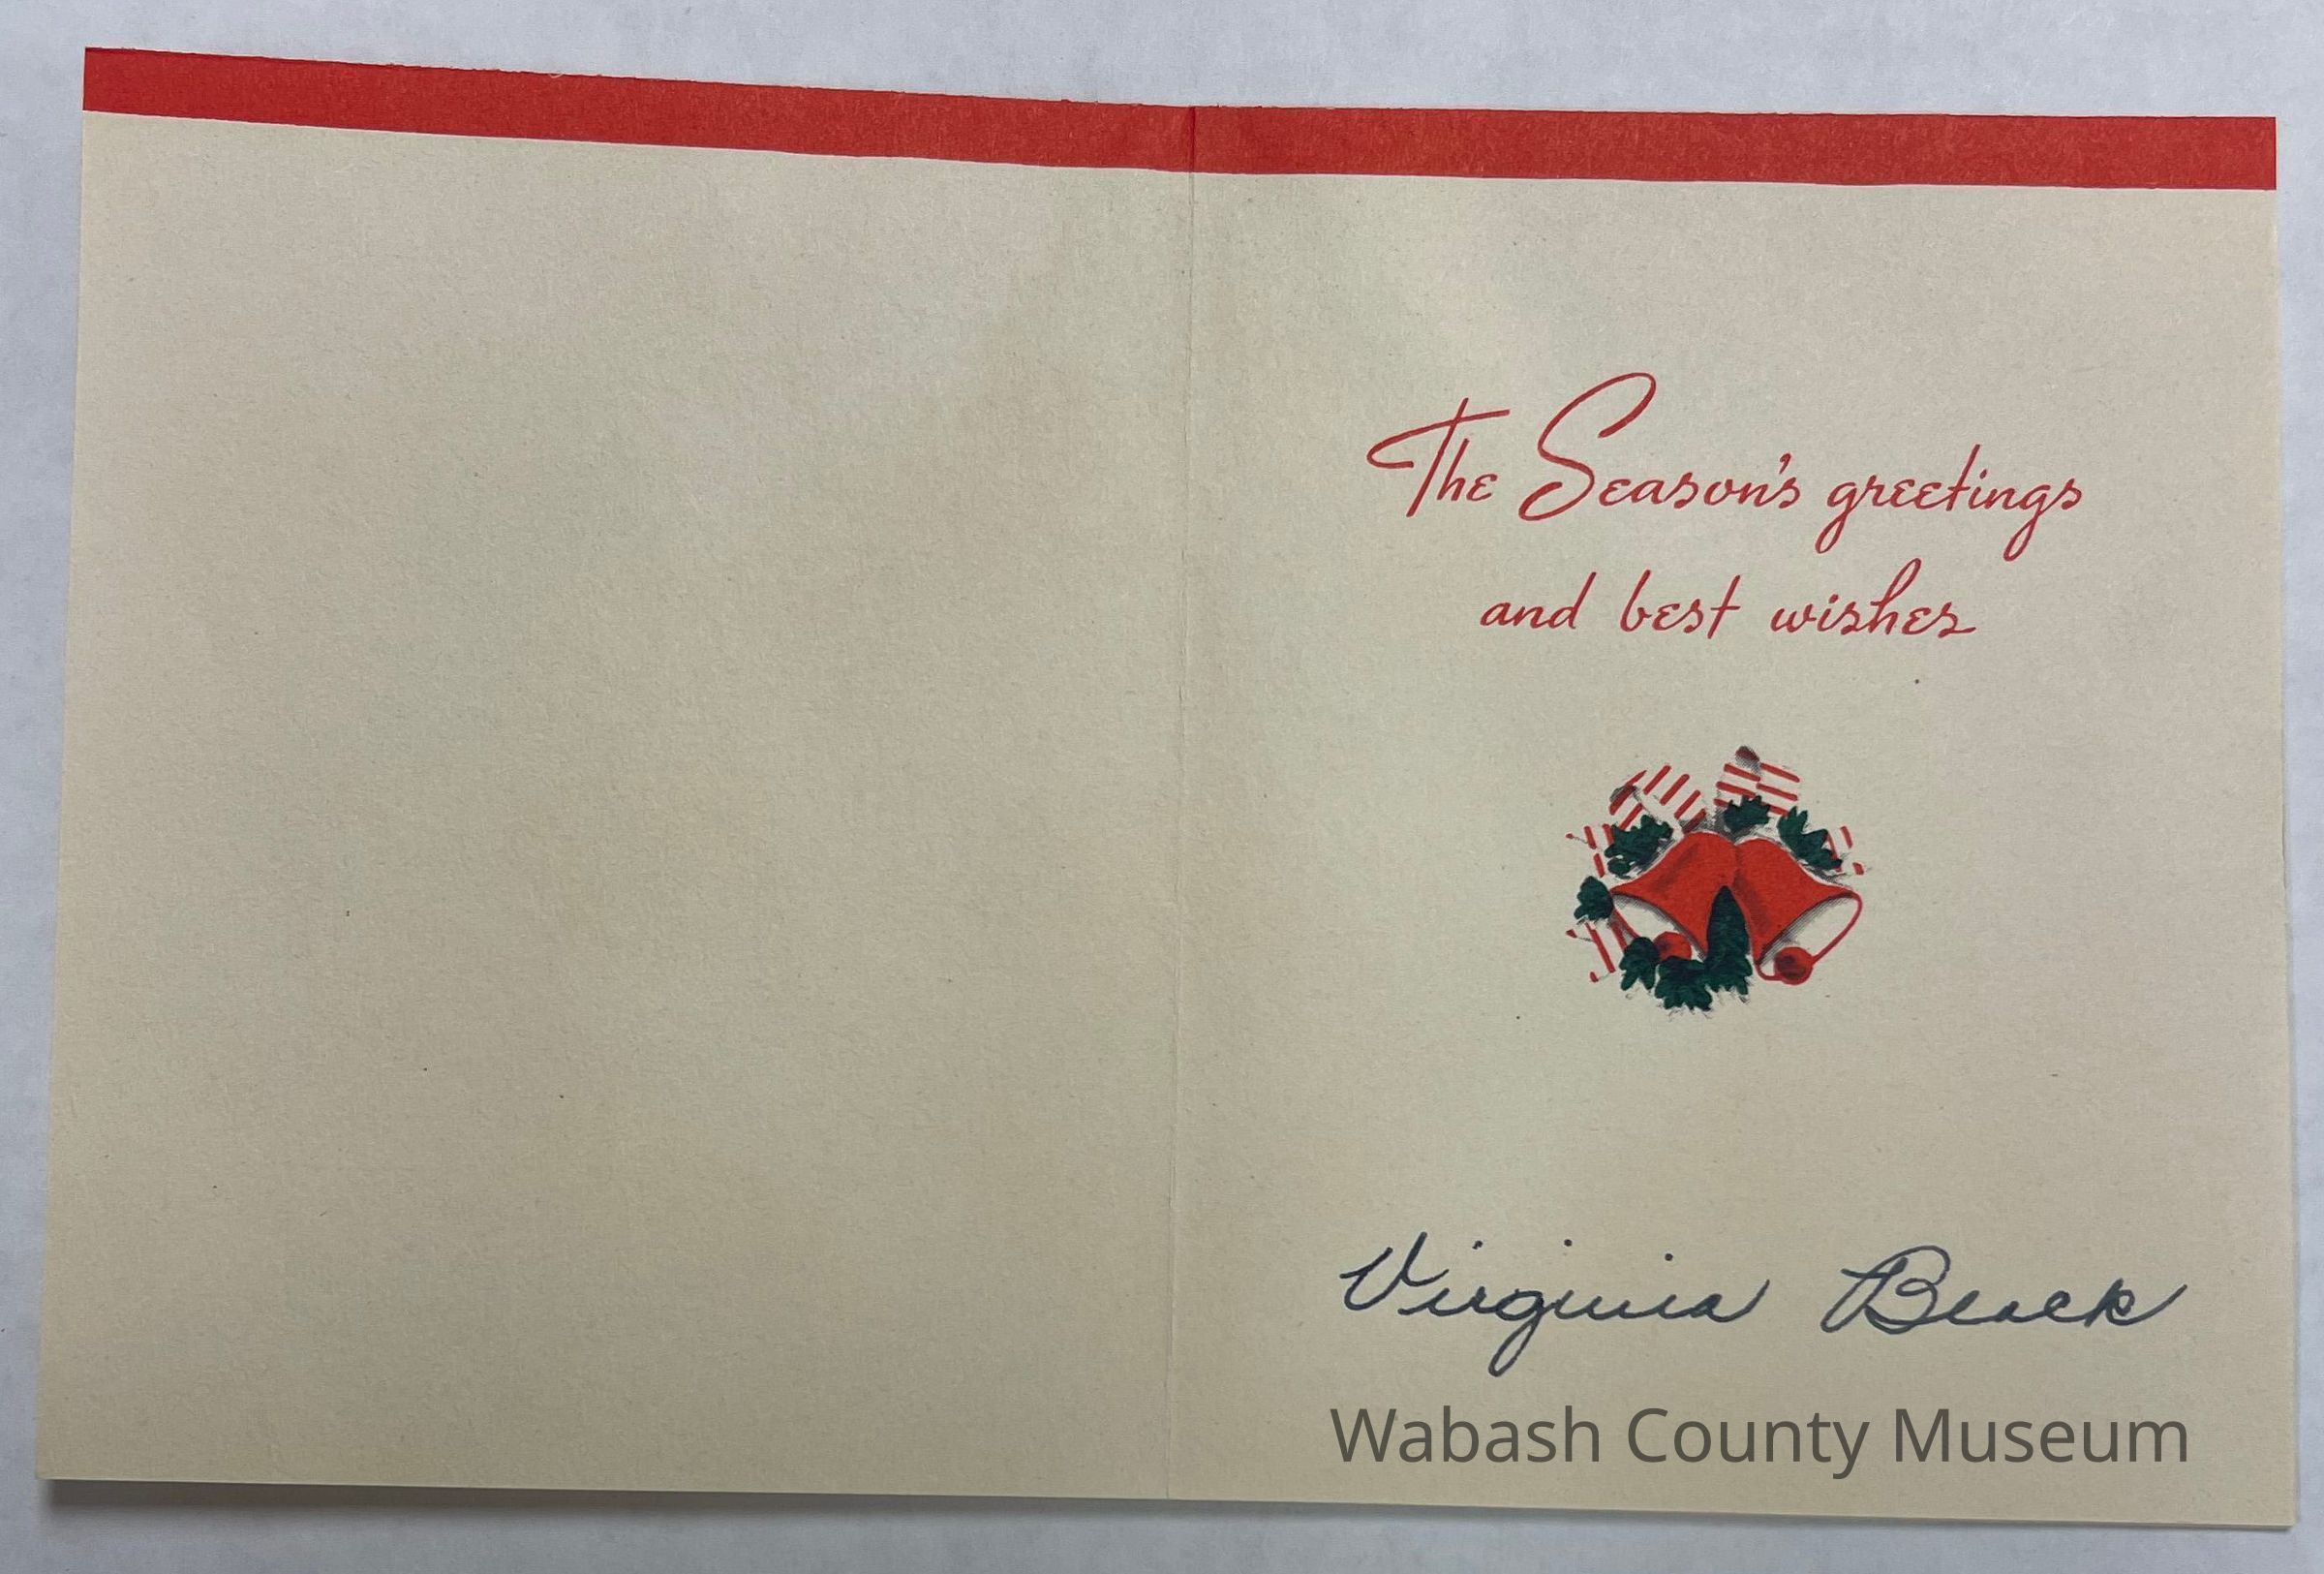 The Season's greetings
and best wishes
Virginia Beack
Wabash County Museum